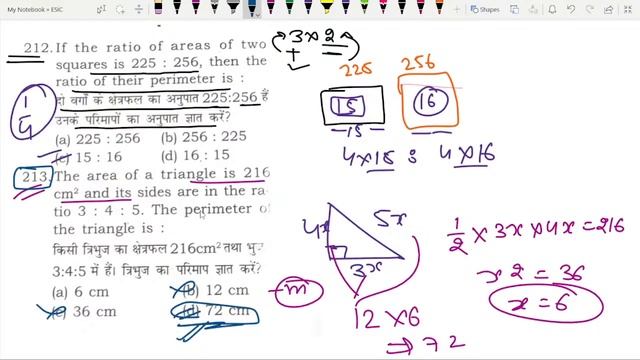 My Notebook » ESIC
212. If the ratio of areas of two
squares is 225 : 256, then the
ratio of their perimeter is :
दो वर्गों के क्षेत्रफल का अनुपात 225:256 हैं
उनके परिमापों का अनुपात ज्ञात करें?
(a) 225 : 256 (b) 256 : 225
(c) 15 : 16 (d) 16 : 15
213. The area of a triangle is 216
cm² and its sides are in the ra-
tio 3 : 4 : 5. The perimeter of
the triangle is :
किसी त्रिभुज का क्षेत्रफल 216cm² तथा भु-
3:4:5 में हैं। त्रिभुज का परिमाप ज्ञात करें?
(a) 6 cm (b) 12 cm
(c) 36 cm (d) 72 cm
3 x 2
+
225 256
15 16
15
4x15 : 4x16
4x 5x
3x
1/2 x 3x x 4x = 216
x2 = 36
x = 6
m
12 x 6
⇒ 72